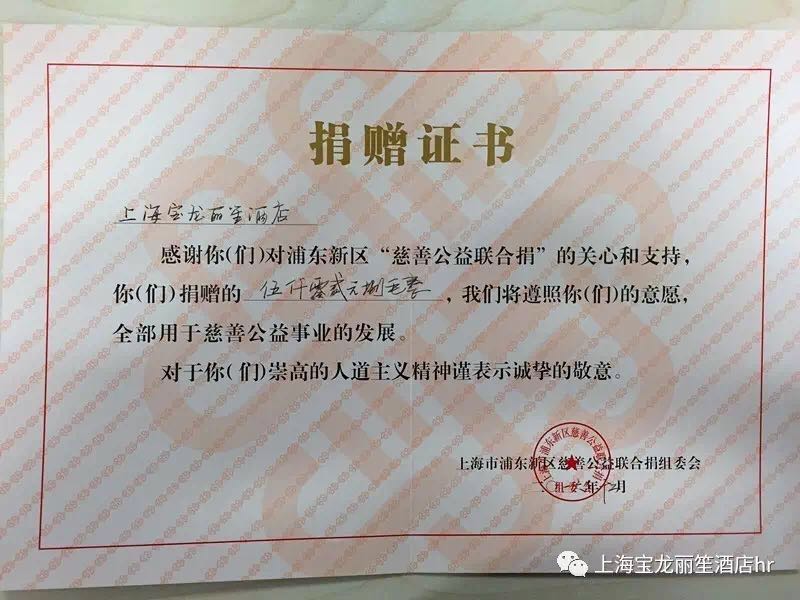 捐赠证书
上海宝龙丽笙酒店
感谢你(们)对浦东新区“慈善公益联合捐”的关心和支持,
你(们)捐赠的 伍仟零贰元捌毛整 ,我们将遵照你(们)的意愿,
全部用于慈善公益事业的发展。
对于你(们)崇高的人道主义精神谨表示诚挚的敬意。
上海市浦东新区慈善公益联合捐组委会
年十二月
组委会
上海宝龙丽笙酒店hr